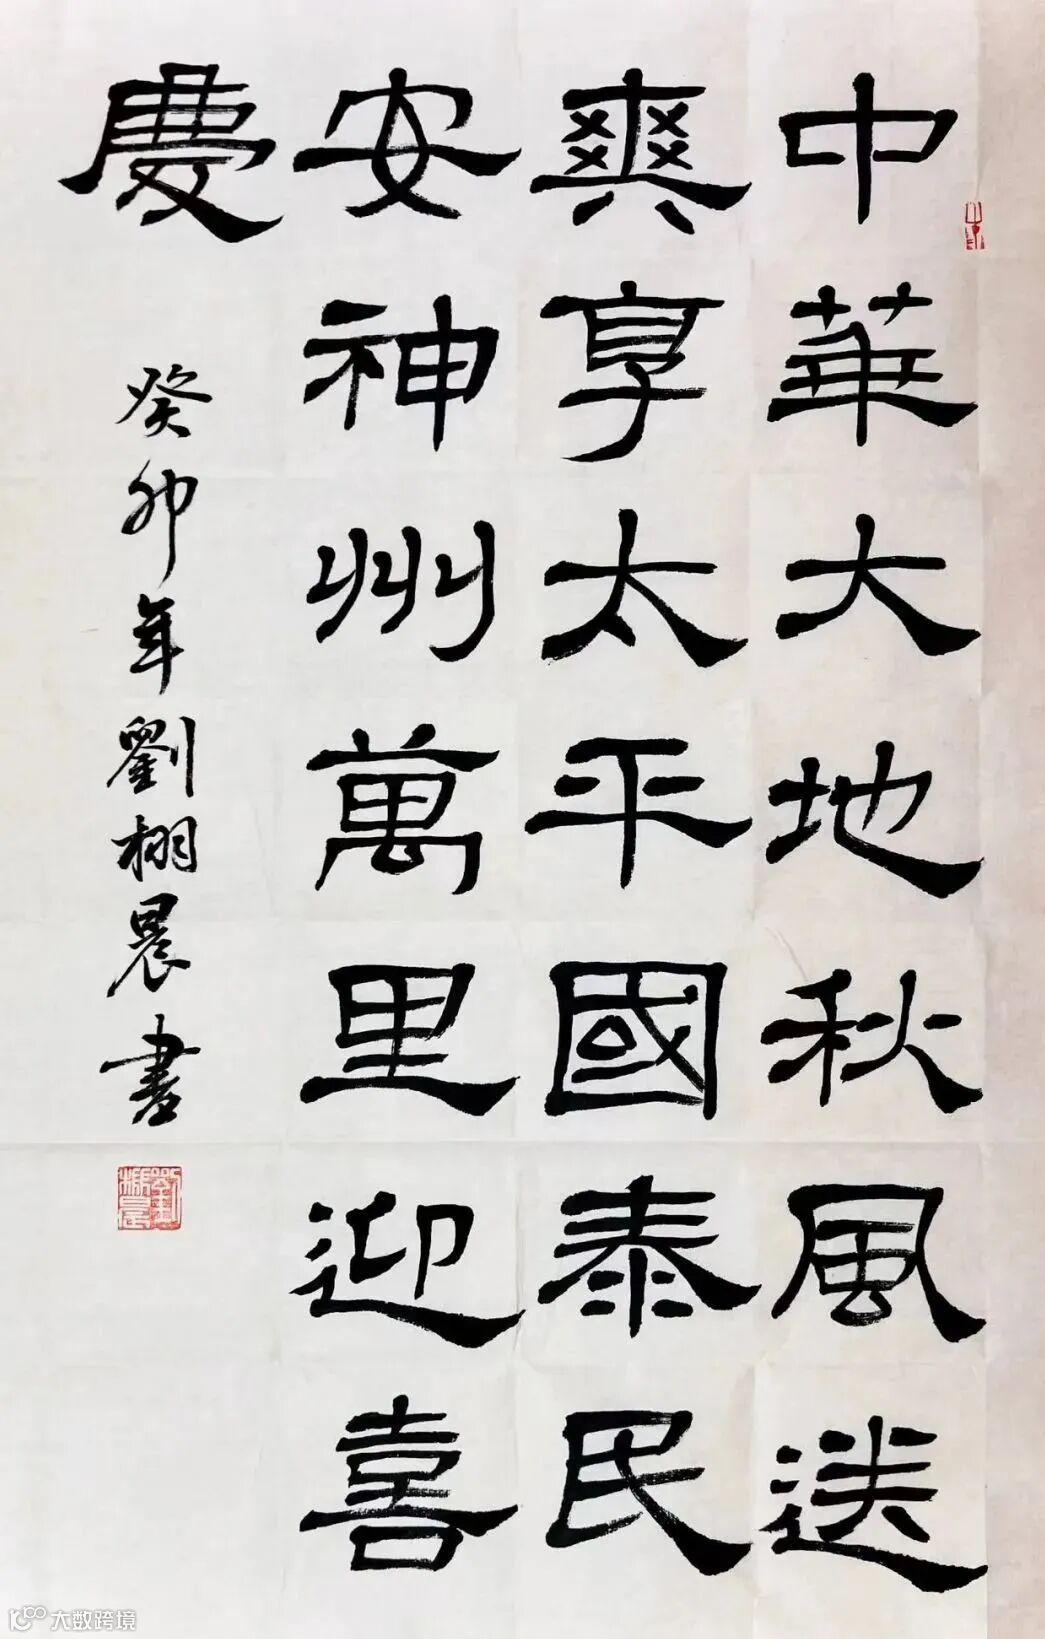 中華大地秋風送
爽享太平國泰民
安神州萬里迎喜
慶
癸卯年劉栩晨書
大数跨境